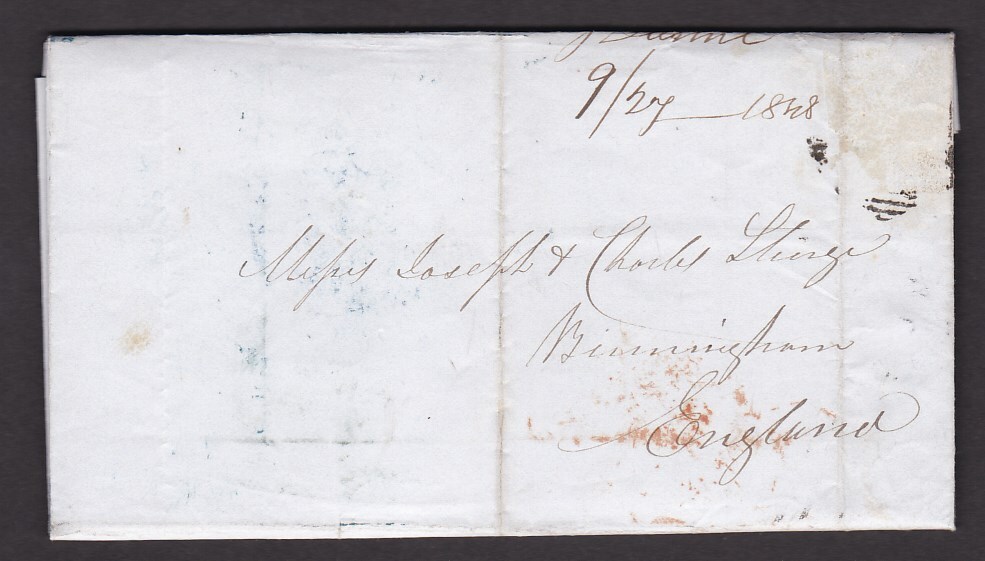 9/27 1848
Messrs Joseph & Charles Sturge
Birmingham
England